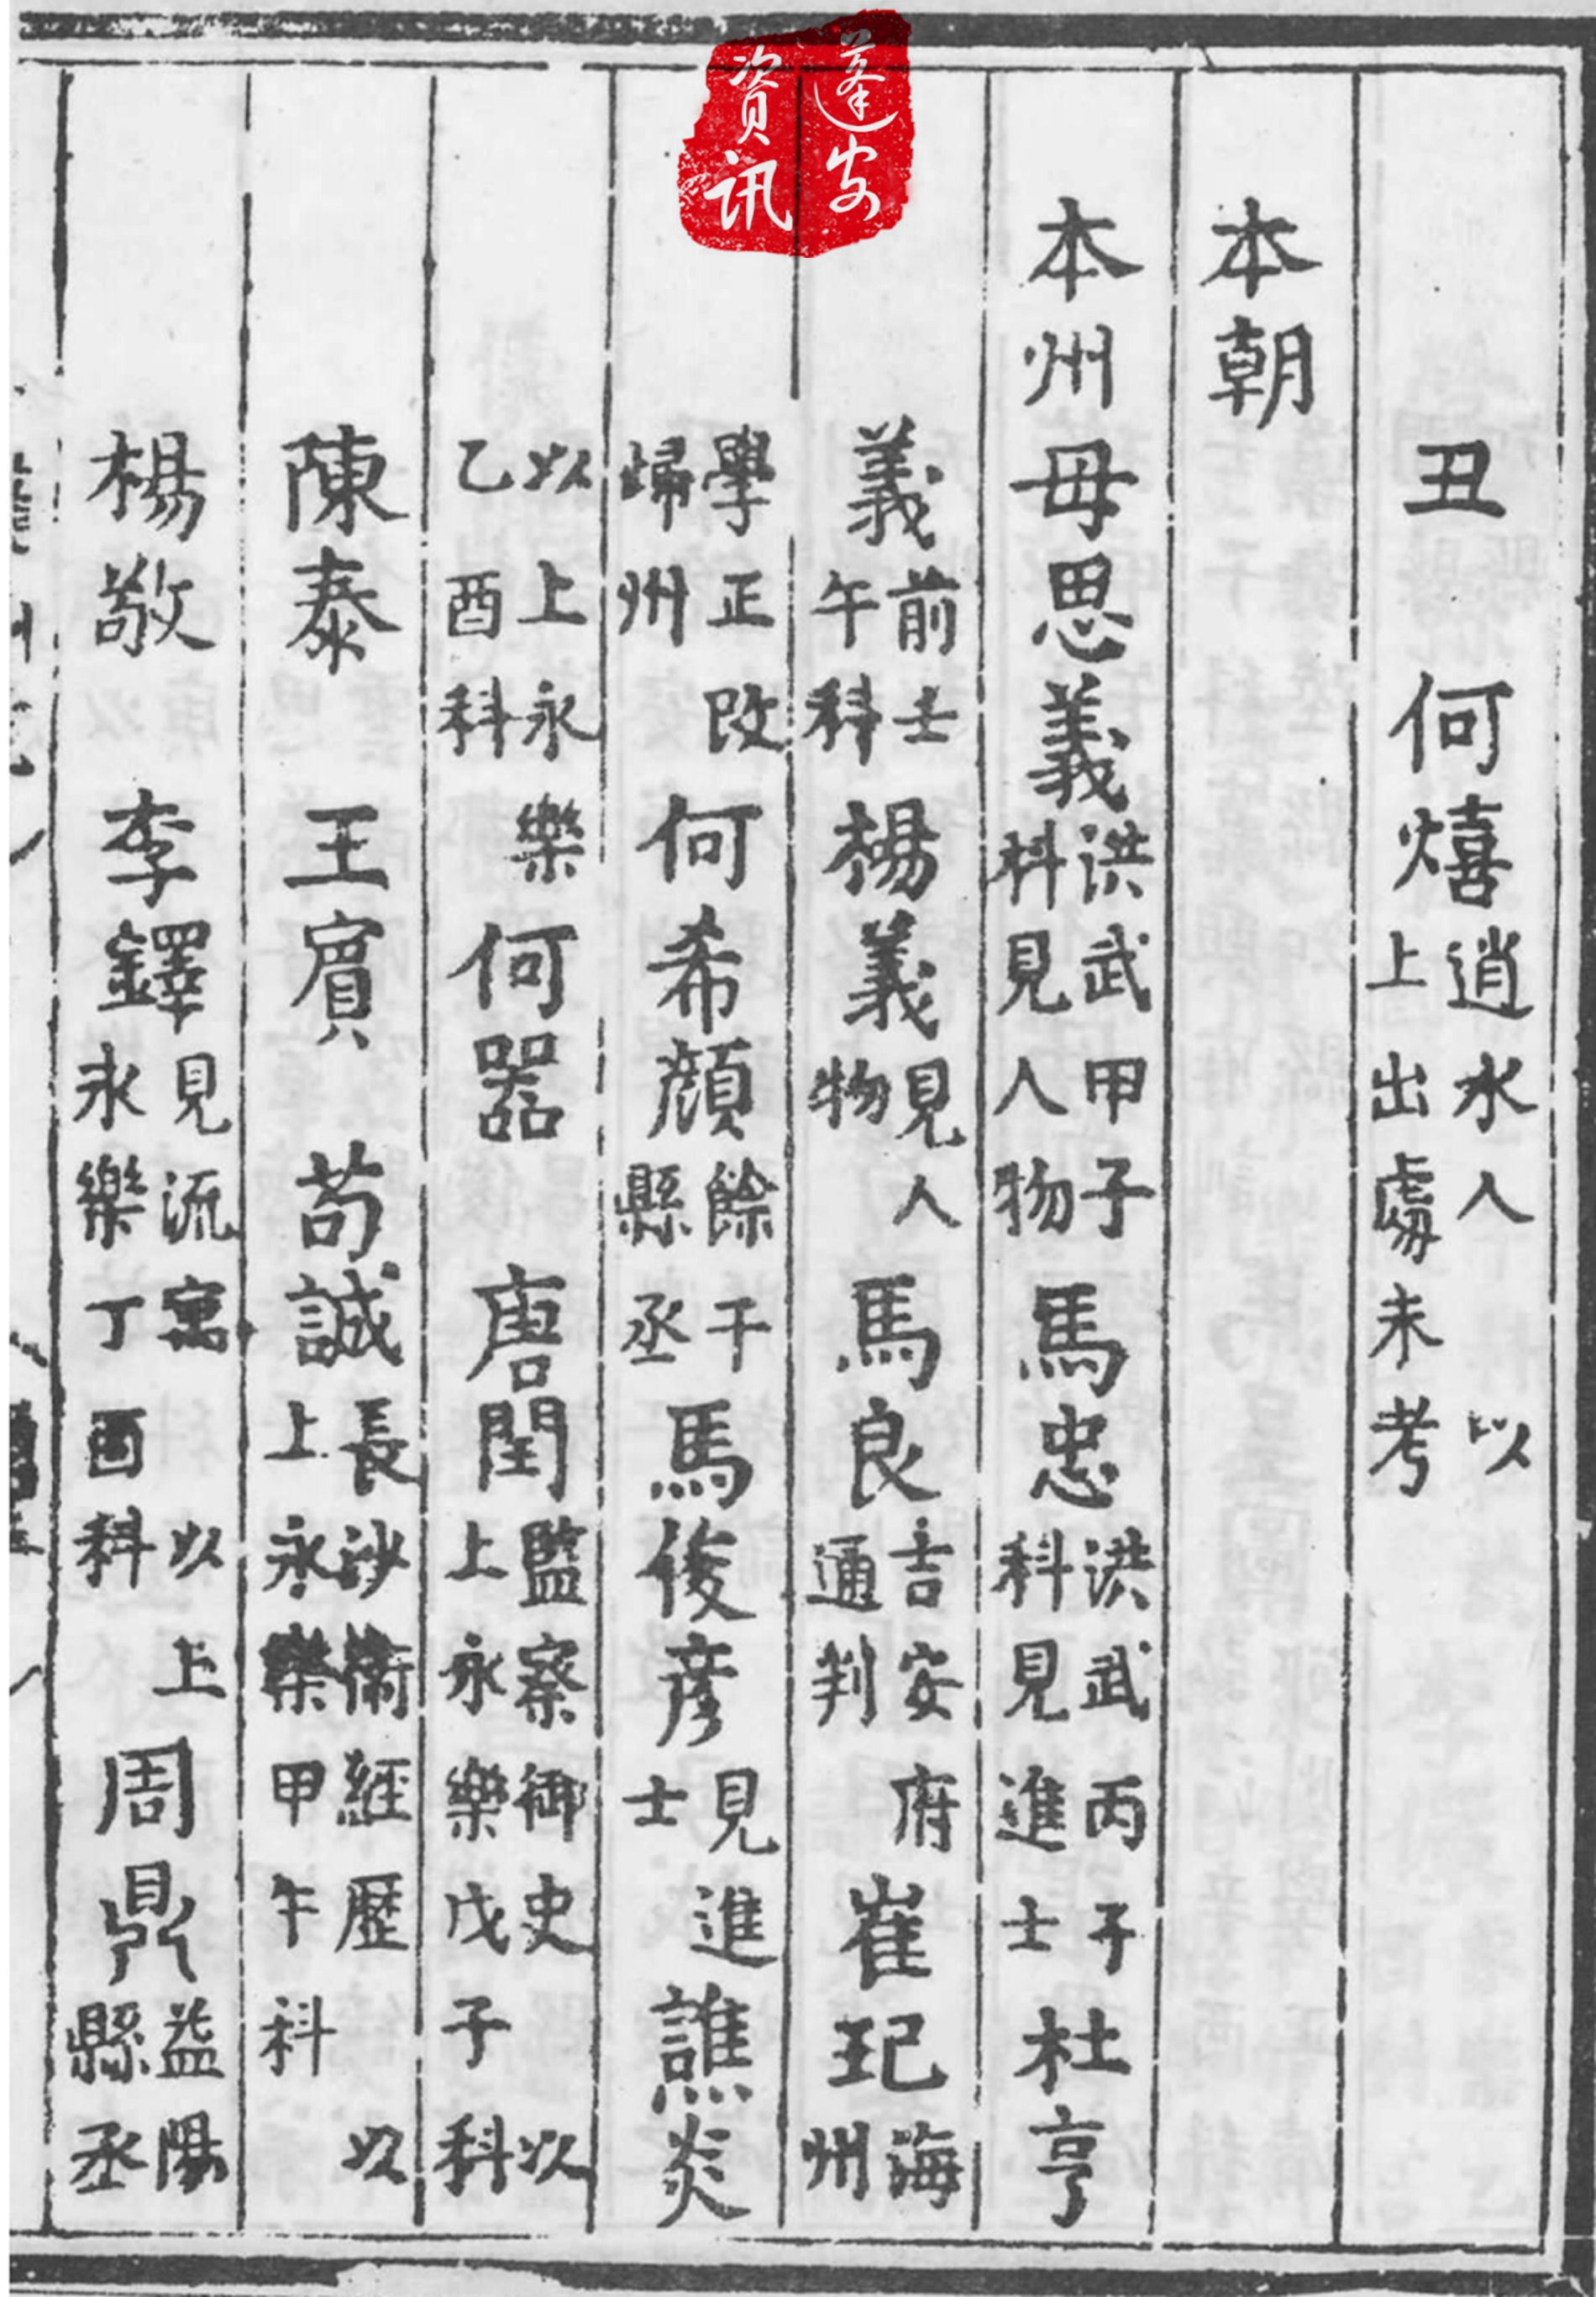 蓬安
资讯
丑　何熺逍水人　以上出處未考
本朝
本州毋思義洪武甲子科見人物　馬忠洪武丙子科見進士杜亨
義前壬午科　楊義見人物　馬良吉安府通判　崔𤣱海州
學正改歸州　何希顔餘干縣丞　馬俊彦見進士　譙炎
以上永樂乙酉科　何噐　唐閏監察御史以上永樂戊子科
陳泰　王賔　茍誠長沙衛經歷以上永樂甲午科
楊敬　李鐸見流寓以上永樂丁酉科　周鼎益陽縣丞